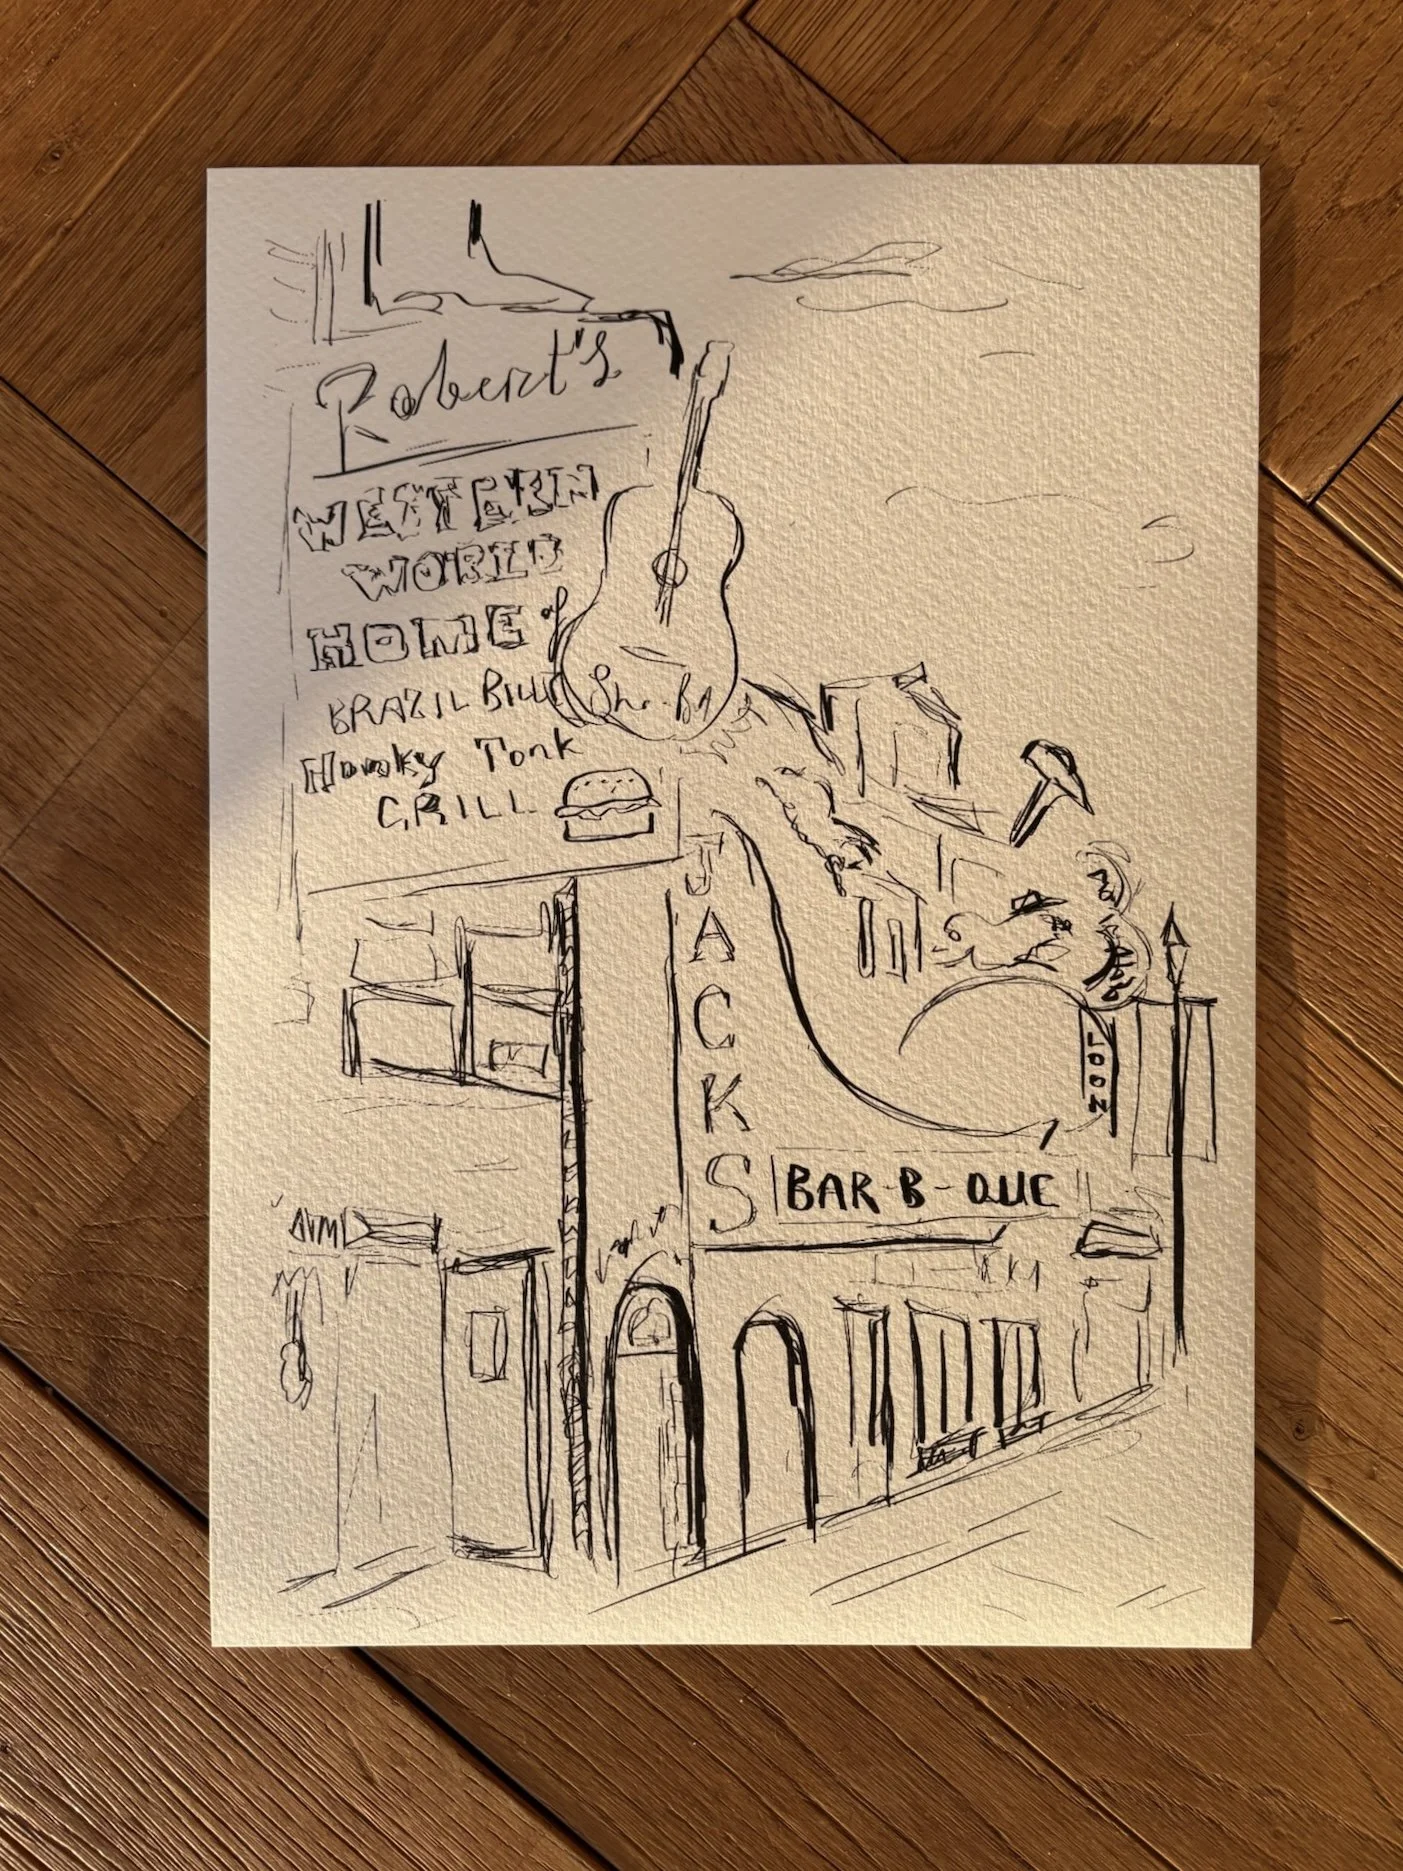 Robert's
WESTERN
WORLD
HOME of
BRAZIL BILL
Honky Tonk
GRILL
JACKS
BAR-B-QUE
LOON